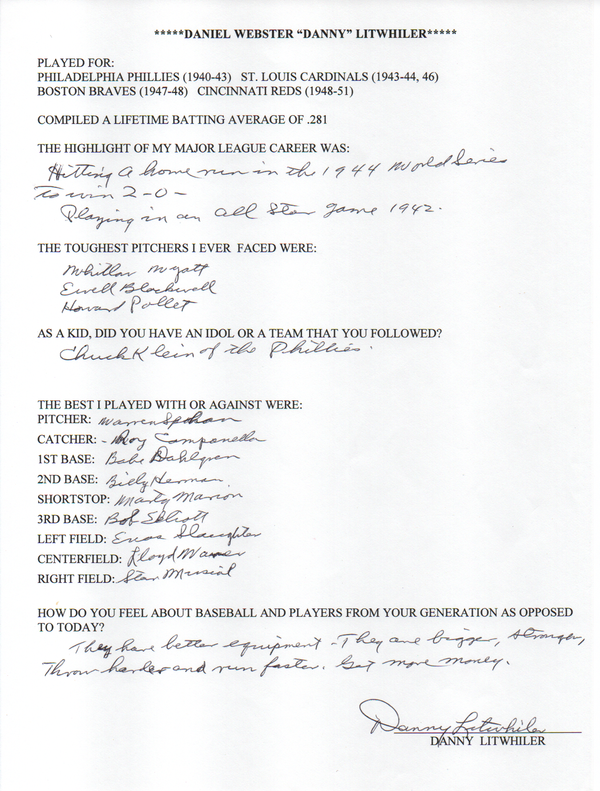 *****DANIEL WEBSTER “DANNY” LITWHILER*****
PLAYED FOR:
PHILADELPHIA PHILLIES (1940-43) ST. LOUIS CARDINALS (1943-44, 46)
BOSTON BRAVES (1947-48) CINCINNATI REDS (1948-51)
COMPILED A LIFETIME BATTING AVERAGE OF .281
THE HIGHLIGHT OF MY MAJOR LEAGUE CAREER WAS:
Hitting a home run in the 1944 World Series
to win 2-0-
Playing in an all Star game 1942.
THE TOUGHEST PITCHERS I EVER FACED WERE:
Whitlow Wyatt
Ewell Blackwell
Howard Pollet
AS A KID, DID YOU HAVE AN IDOL OR A TEAM THAT YOU FOLLOWED?
Chuck Klein of the Phillies.
THE BEST I PLAYED WITH OR AGAINST WERE:
PITCHER: Warren Spahn
CATCHER: - Roy Campanella
1ST BASE: Babe Dahlgren
2ND BASE: Billy Herman
SHORTSTOP: Marty Marion
3RD BASE: Bob Elliott
LEFT FIELD: Enos Slaughter
CENTERFIELD: Lloyd Waner
RIGHT FIELD: Stan Musial
HOW DO YOU FEEL ABOUT BASEBALL AND PLAYERS FROM YOUR GENERATION AS OPPOSED
TO TODAY?
They have better equipment - They are bigger, stronger,
Throw harder and run faster. Get more money.
Danny Litwhiler
DANNY LITWHILER